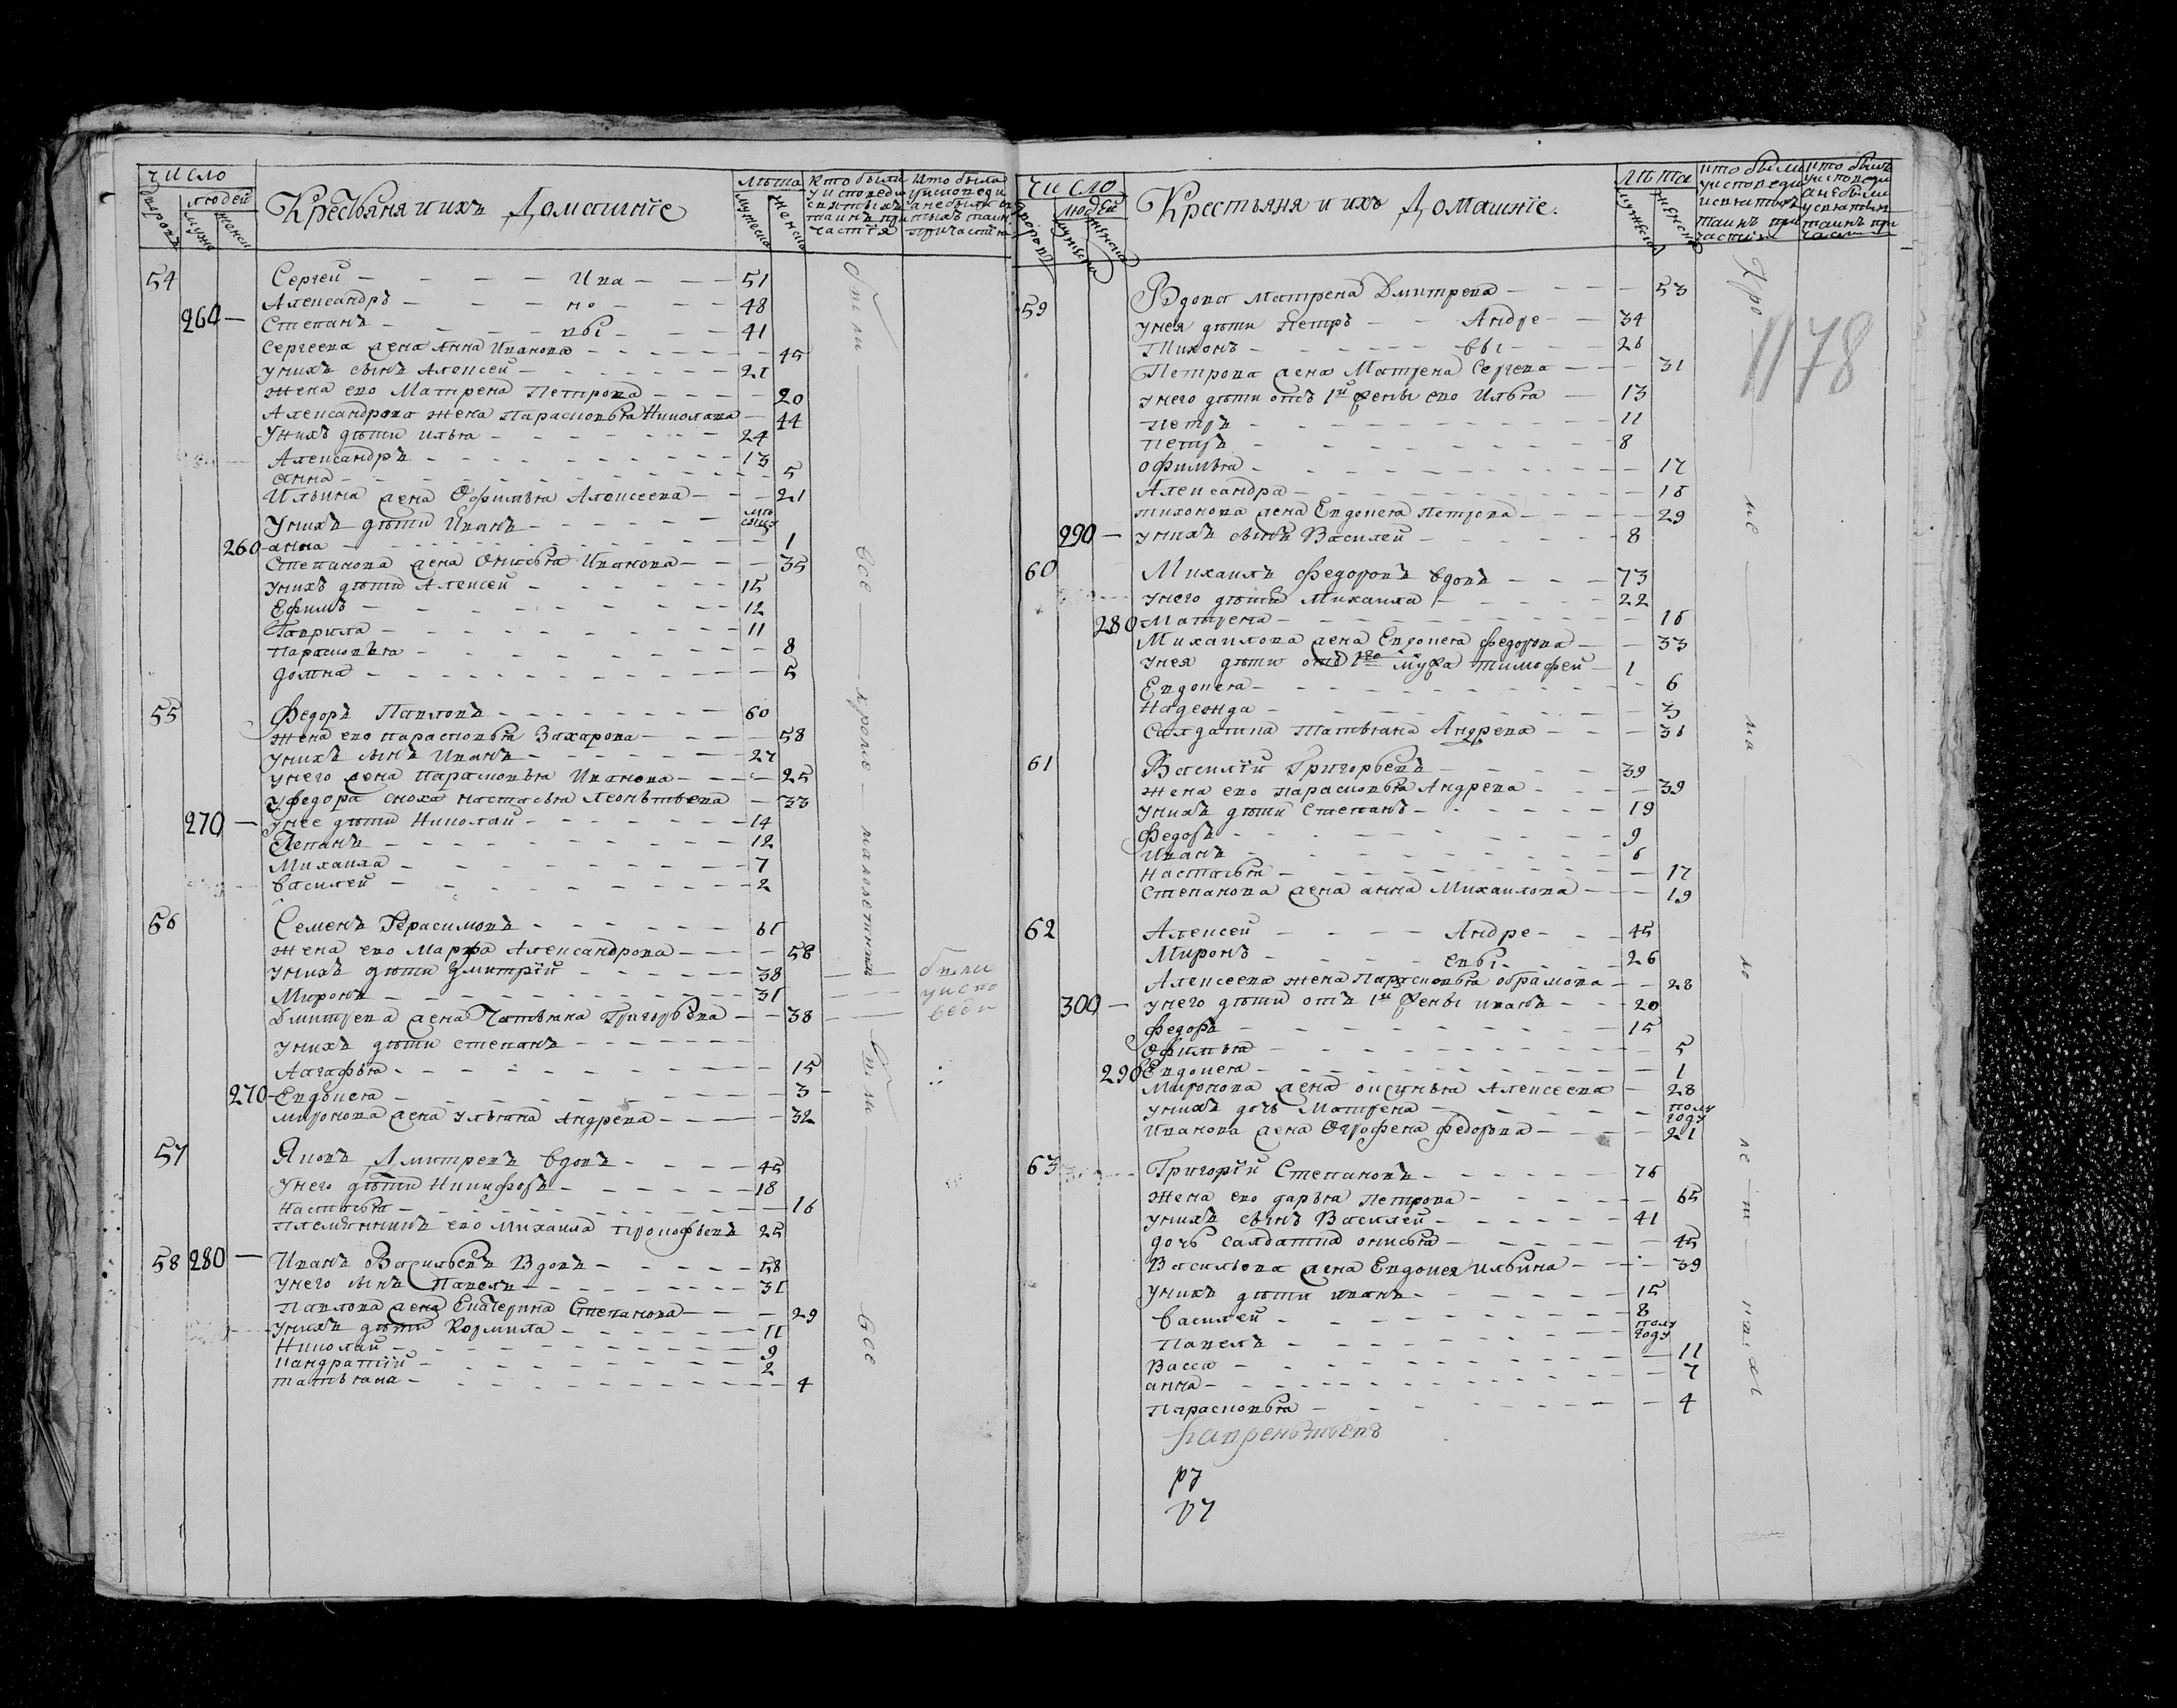 число
дворовъ
людей
мужс
женск
Крестьяня и ихъ Домашніе
лѣта
мужеска
женска
Кто были
у исповеди
святыхъ
таинъ при
частія
Кто были
у исповеди
а не были
54
Сергей — Ива — 51
Александръ — но — 48
264 — Степанъ — вы — 41
Сергеева жена Анна Иванова — 45
у нихъ сынъ Алексей — 21
жена ево Матрена Петрова — 20
Александрова жена Парасковья Николаева — 44
У нихъ дѣти Илья — 24
Александръ — 13
анна — 5
Ильина жена Офимья Алексеева — 21
У нихъ дѣти Иванъ —
260 — анна — 1
Степанова жена Онисья Иванова — 35
у нихъ дѣти Алексей — 15
Ефимъ — 12
Гаврила — 11
Парасковья — 8
домна — 5
55 Федоръ Павловъ — 60
жена ево парасковья Захарова — 58
у нихъ сынъ Иванъ — 27
у него жена парасковья Иванова — 25
у федора сноха настасья Леонтьева — 33
270 — у нее дѣти Николай — 14
Степанъ — 12
Михаила — 7
василей — 2
56 Семенъ Герасимовъ — 61
жена ево Марфа Александрова — 58
у нихъ дѣти дмитрій — 38
Миронъ — 31
Дмитрева жена Татьяна Григорьева — 38
у нихъ дѣти степанъ —
Аагафья — 15
270 — Евдокея — 3
миронова жена ульяна Андрева — 32
57 Яковъ Дмитревъ вдовъ — 45
У него дѣти Никифоръ — 18
настасья — 16
племянникъ ево Михаила прокофьевъ 25
58 280 — Иванъ Васильевъ Вдовъ — 58
У него сынъ Павелъ — 31
Павлова жена Екатерина Степанова — 29
у нихъ дѣти Кормила — 11
Николай — 9
кандратій — 2
татьяна — 4
были
все
кроме
малолетныхъ
были
у испо
веди
были
все
число
дворовъ
людей
мужеска
женска
Крестьяня и ихъ Домашніе.
лѣта
мужеска
женска
кто были
у исповеди
и святыхъ
таинъ при
частія
кто были
у исповеди
а не были
у святыхъ
таинъ при
части
1178
59 Вдова Матрена Дмитрева — 53
у нея дѣти Петръ — Андре — 34
Тихонъ — вы — 26
Петрова жена Матрена Сергева — 31
у него дѣти отъ 1й жены ево Илья — 13
петръ — 11
петръ — 8
офимья — 17
Александра — 16
тихонова жена Евдокея Петрова — 29
290 — у нихъ сынъ Василей — 8
60 Михаилъ Федоровъ вдовъ — 73
у него дѣти Михаила — 22
280 Матрена — 16
Михаилова жена Евдокея федорова — 33
у нея дѣти отъ 1го мужа тимофей — 1
Евдокея — 6
надежда — 3
Салдатка Татьяна Андрева — 36
61 Василій Григорьевъ — 39
жена ево парасковья Андрева — 39
у нихъ дѣти Степанъ — 19
Федоръ — 9
Иванъ — 6
настасья — 17
степанова жена анна Михаилова — 19
62 Алексей — Андре — 45
Миронъ — евы — 26
Алексеева жена Парасковья обрамова — 28
300 — у него дѣти отъ 1й жены иванъ — 20
федоръ — 15
Офимья — 5
290 Евдокея — 1
Миронова жена оксинья Алексеева — 28
у нихъ дочь Матрена — полу году
Иванова жена Огрофена федорова — 21
63 Григорій Степановъ — 76
жена ево дарья Петрова — 65
у нихъ сынъ Василей — 41
дочь салдатка онисья — 45
Васильева жена Евдокея Ильина — 39
у нихъ дѣти иванъ — 15
василей — 8
Павелъ — полу году
Васса — 11
анна — 7
парасковья — 4
Кро
ме
ма
ло
ле
т